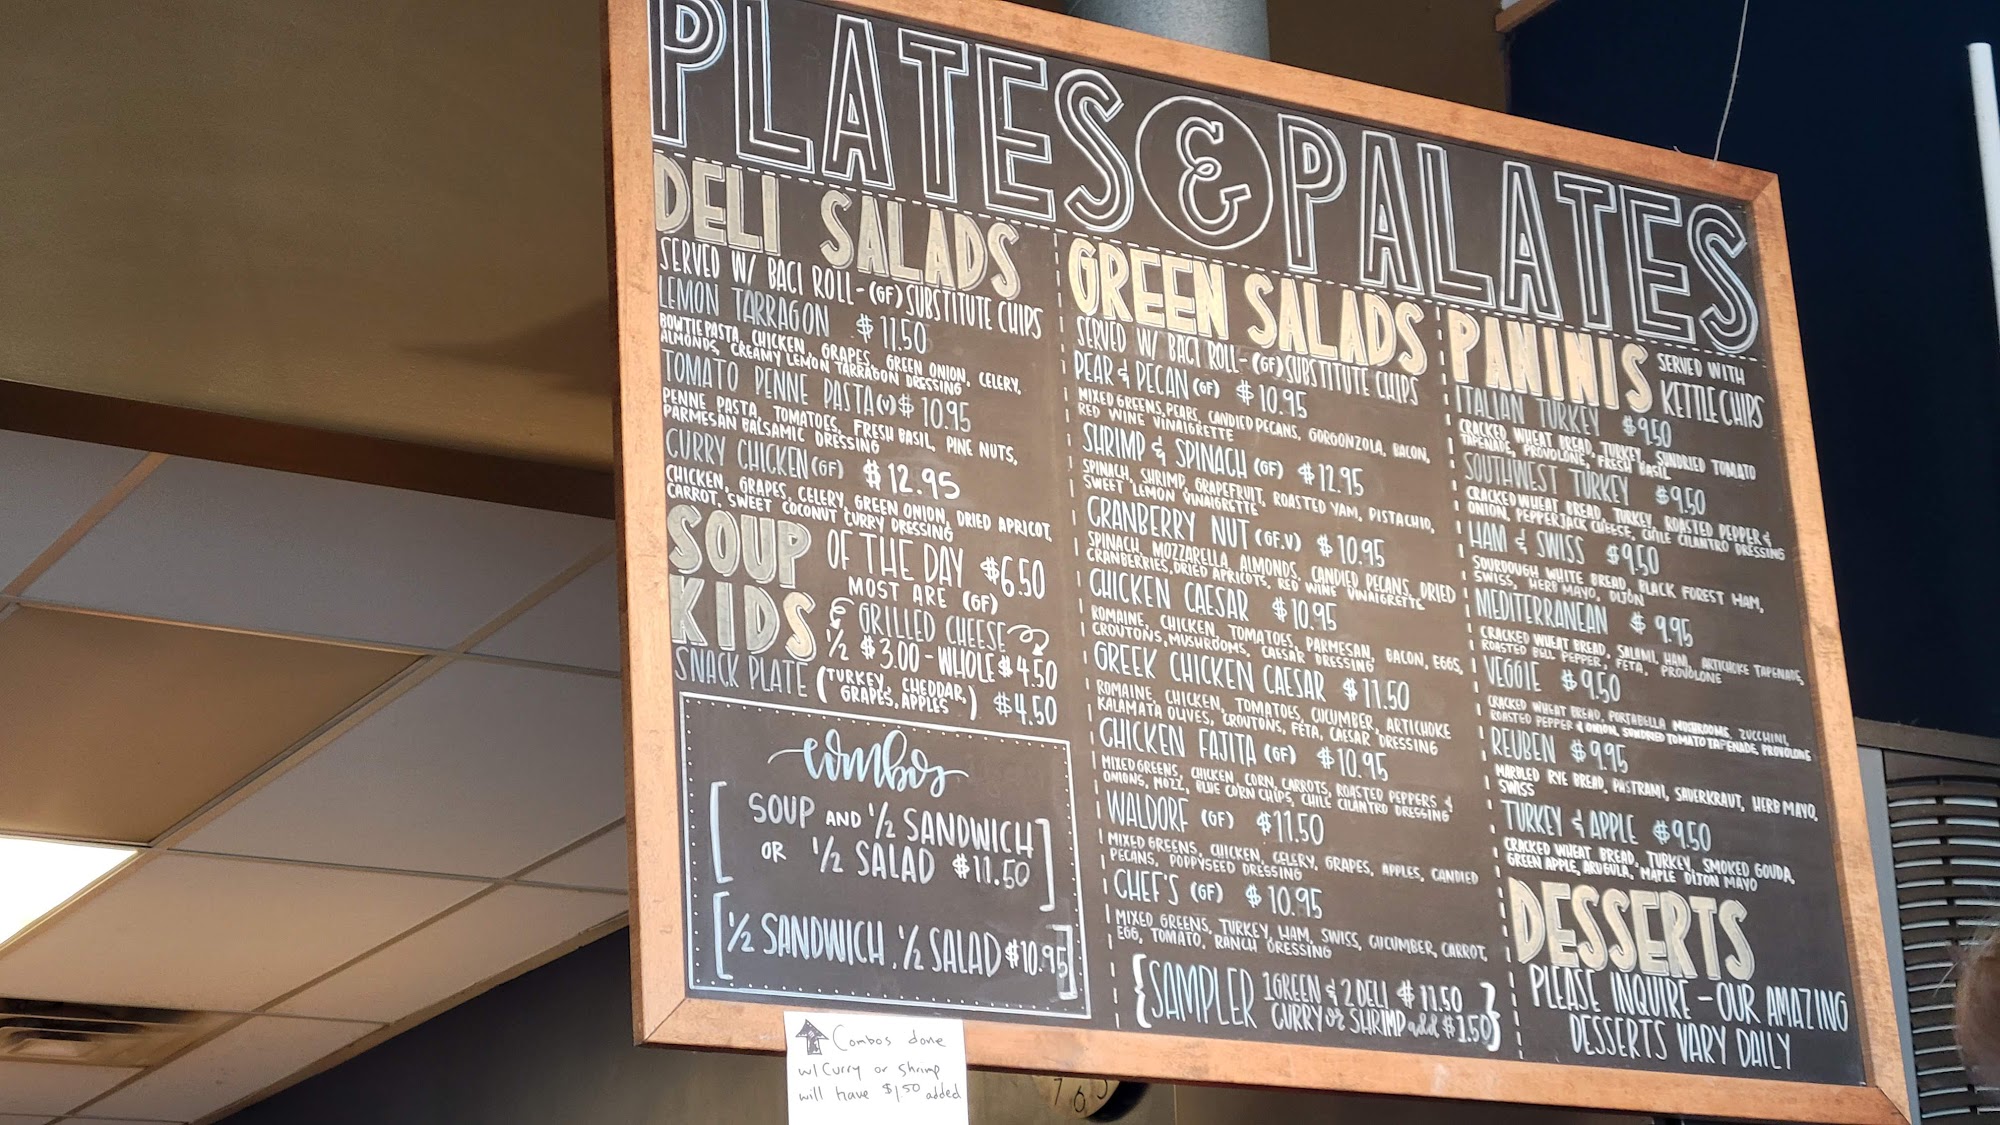 PLATES & PALATES
DELI SALADS
SERVED W/ BACI ROLL - (GF) SUBSTITUTE CHIPS
LEMON TARRAGON $11.50
BOWTIE PASTA, CHICKEN, GRAPES, GREEN ONION, CELERY,
ALMONDS, CREAMY LEMON TARRAGON DRESSING
TOMATO PENNE PASTA (V) $10.95
PENNE PASTA, TOMATOES, FRESH BASIL, PINE NUTS,
PARMESAN BALSAMIC DRESSING
CURRY CHICKEN (GF) $12.95
CHICKEN, GRAPES, CELERY, GREEN ONION, DRIED APRICOT,
CARROT, SWEET COCONUT CURRY DRESSING
SOUP OF THE DAY $6.50
MOST ARE (GF)
KIDS GRILLED CHEESE
1/2 $3.00 - WHOLE $4.50
SNACK PLATE (TURKEY, CHEDDAR,
GRAPES, APPLES) $4.50
combos
[SOUP AND 1/2 SANDWICH
OR 1/2 SALAD $11.50]
[1/2 SANDWICH, 1/2 SALAD $10.95]
GREEN SALADS
SERVED W/ BACI ROLL - (GF) SUBSTITUTE CHIPS
PEAR & PECAN (GF) $10.95
MIXED GREENS, PEARS, CANDIED PECANS, GORGONZOLA, BACON,
RED WINE VINAIGRETTE
SHRIMP & SPINACH (GF) $12.95
SPINACH, SHRIMP, GRAPEFRUIT, ROASTED YAM, PISTACHIO,
SWEET LEMON VINAIGRETTE
CRANBERRY NUT (GF,V) $10.95
SPINACH, MOZZARELLA, ALMONDS, CANDIED PECANS, DRIED
CRANBERRIES, DRIED APRICOTS, RED WINE VINAIGRETTE
CHICKEN CAESAR $10.95
ROMAINE, CHICKEN, TOMATOES, PARMESAN, BACON, EGGS,
CROUTONS, MUSHROOMS, CAESAR DRESSING
GREEK CHICKEN CAESAR $11.50
ROMAINE, CHICKEN, TOMATOES, CUCUMBER, ARTICHOKE
KALAMATA OLIVES, CROUTONS, FETA, CAESAR DRESSING
CHICKEN FAJITA (GF) $10.95
MIXED GREENS, CHICKEN, CORN, CARROTS, ROASTED PEPPERS &
ONIONS, MOZZ, BLUE CORN CHIPS, CHILE CILANTRO DRESSING
WALDORF (GF) $11.50
MIXED GREENS, CHICKEN, CELERY, GRAPES, APPLES, CANDIED
PECANS, POPPYSEED DRESSING
CHEF'S (GF) $10.95
MIXED GREENS, TURKEY, HAM, SWISS, CUCUMBER, CARROT,
EGG, TOMATO, RANCH DRESSING
{SAMPLER 1 GREEN & 2 DELI $11.50
CURRY or SHRIMP add $1.50}
PANINIS SERVED WITH
KETTLE CHIPS
ITALIAN TURKEY $9.50
CRACKED WHEAT BREAD, TURKEY, SUNDRIED TOMATO
TAPENADE, PROVOLONE, FRESH BASIL
SOUTHWEST TURKEY $9.50
CRACKED WHEAT BREAD, TURKEY, ROASTED PEPPER &
ONION, PEPPERJACK CHEESE, CHILE CILANTRO DRESSING
HAM & SWISS $9.50
SOURDOUGH WHITE BREAD, BLACK FOREST HAM,
SWISS, HERB MAYO, DIJON
MEDITERRANEAN $9.95
CRACKED WHEAT BREAD, SALAMI, HAM, ARTICHOKE TAPENADE,
ROASTED BELL PEPPER, FETA, PROVOLONE
VEGGIE $9.50
CRACKED WHEAT BREAD, PORTABELLA MUSHROOMS, ZUCCHINI,
ROASTED PEPPER & ONION, SUNDRIED TOMATO TAPENADE, PROVOLONE
REUBEN $9.95
MARBLED RYE BREAD, PASTRAMI, SAUERKRAUT, HERB MAYO,
SWISS
TURKEY & APPLE $9.50
CRACKED WHEAT BREAD, TURKEY, SMOKED GOUDA,
GREEN APPLE, ARUGULA, MAPLE DIJON MAYO
DESSERTS
PLEASE INQUIRE - OUR AMAZING
DESSERTS VARY DAILY
Combos done
w/ Curry or shrimp
will have $1.50 added
7 6 5